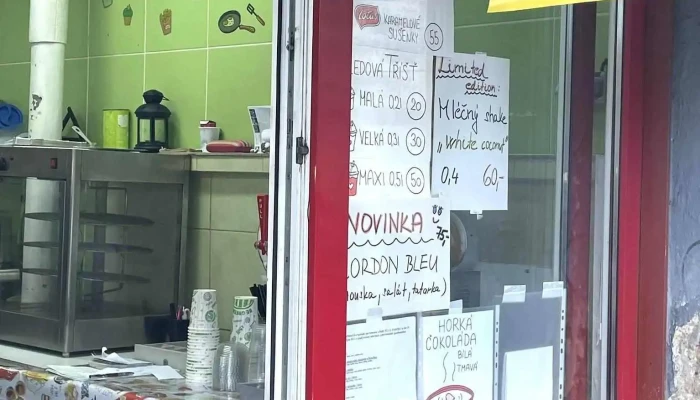 KARAMELOVÉ
SUŠENKY 55
LEDOVÁ TŘÍŠŤ
MALÁ 0.2l 20
VELKÁ 0.3l 30
MAXI 0.5l 50
Limited
edition:
Mléčný shake
„White coconut"
0,4 60,-
NOVINKA
75,-
CORDON BLEU
houska, salát, tatarka)
HORKÁ
ČOKOLÁDA
BÍLÁ
TMAVÁ